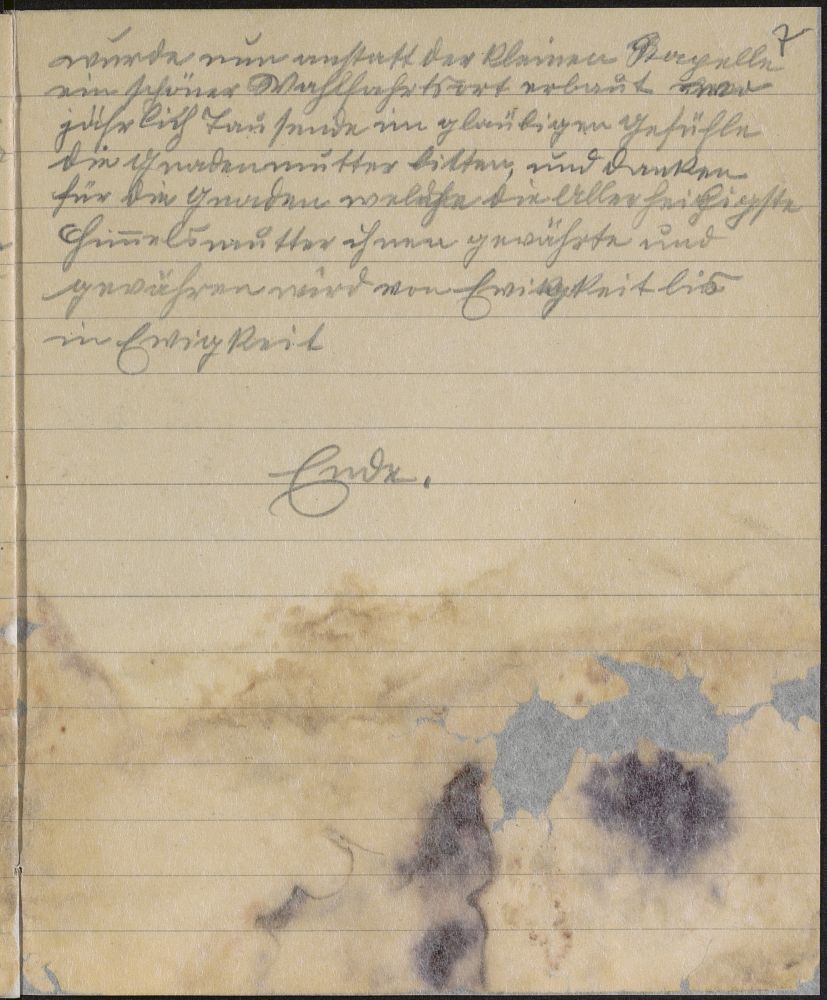 7
wurde nun anstatt der kleinen Kapelle
ein schöner Wahlfahrtsort erbaut wo
jährlich Tausende im glaübigen Gefühle
die Gnadenmutter bitten, und danken
für die Gnaden welche die Allerheiligste
Himmelsmutter ihnen gewährte und
gewähren wird von Ewigkeit bis
in Ewigkeit
Ende.